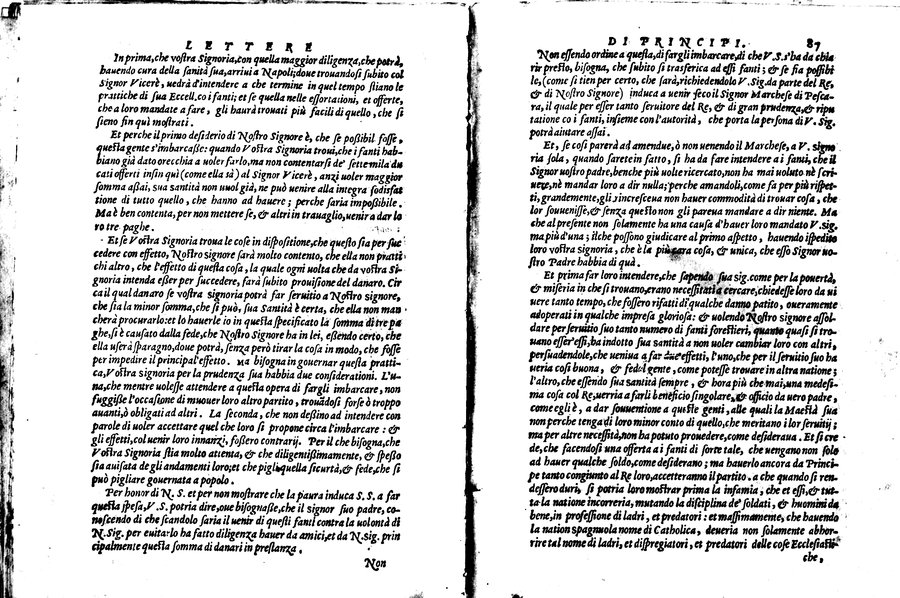 LETTERE
In prima, che vostra Signoria, con quella maggior diligenza, che potrà,
hauendo cura della sanità sua, arriui a Napoli; doue trouandosi subito col
Signor Vicerè, uedrà d'intendere a che termine in quel tempo stiano le
prattiche di sua Eccell. co i fanti; et se quella nelle essortationi, et offerte,
che a loro mandate a fare, gli haurà trouati più facili di quello, che si
sieno fin quì mostrati.
Et perche il primo desiderio di Nostro Signore è, che se possibil fosse,
questa gente s'imbarcasse: quando Vostra Signoria troui, che i fanti hab-
biano già dato orecchia a uoler farlo, ma non contentarsi de' sette mila du
cati offerti infin quì (come ella sà) al Signor Vicerè, anzi uoler maggior
somma assai, sua santità non uuol già, ne può uenire alla integra sodisfat
tione di tutto quello, che hanno ad hauere; perche saria impossibile.
Ma è ben contenta, per non mettere se, & altri in trauaglio, uenir a dar lo
ro tre paghe.
Et se Vostra Signoria troua le cose in dispositione, che questo sia per suc
cedere con effetto, Nostro Signore sarà molto contento, che ella non pratti
chi altro, che l'effetto di questa cosa, la quale ogni uolta che da vostra Si-
gnoria intenda esser per succedere, farà subito prouisione del danaro. Cir
ca il qual danaro se vostra signoria potrà far seruitio a Nostro Signore,
che sia la minor somma, che si può, sua Santità è certa, che ella non man
cherà procurarlo: et lo hauerle io in questa specificato la somma di tre pa
ghe, si è causato dalla fede, che Nostro Signore ha in lei, essendo certo, che
ella userà sparagno, doue potrà, senza però tirar la cosa in modo, che fosse
per impedire il principal'effetto. Ma bisogna in gouernar questa pratti-
ca, Vostra signoria per la prudenza sua habbia due considerationi. L'u-
na, che mentre uolesse attendere a questa opera di fargli imbarcare, non
fuggisse l'occasione di muouer loro altro partito, trouādosi forse ò troppo
auanti, ò obligati ad altri. La seconda, che non dessino ad intendere con
parole di uoler accettare quel che loro si propone circa l'imbarcare: &
gli effetti, col uenir loro innanzi, fossero contrarij. Per il che bisogna, che
Vostra Signoria stia molto attenta, & che diligentissimamente, & spesso
sia auisata de gli andamenti loro; et che pigli quella sicurtà, & fede, che si
può pigliare gouernata a popolo.
Per honor di N. S. et per non mostrare che la paura induca S. S. a far
questa spesa, V. S. potria dire, oue bisognasse, che il signor suo padre, co-
noscendo di che scandolo saria il uenir di questi fanti contra la uolontà di
N. Sig. per euitarlo ha fatto diligenza hauer da amici, et da N. Sig. prin
cipalmente questa somma di danari in prestanza.
Non
DI PRINCIPI. 87
Non essendo ordine a questa, di fargli imbarcare, di che V. S. s'ha da chia
rir presto, bisogna, che subito si trasferica ad essi fanti; & se sia possibi
le, (come si tien per certo, che sarà, richiedendolo V. Sig. da parte del Re,
& di Nostro Signore) induca a uenir seco il Signor Marchese di Pesca-
ra, il quale per esser tanto seruitore del Re, & di gran prudenza, & ripu
tatione co i fanti, insieme con l'autorità, che porta la persona di V. Sig.
potrà aintare assai.
Et, se così parerà ad amendue, ò non uenendo il Marchese, a V. signo
ria sola, quando sarete in fatto, si ha da fare intendere a i fanti, che il
Signor uostro padre, benche più uolte ricercato, non ha mai uoluto nè scri
uere, nè mandar loro a dir nulla; perche amandoli, come fa per più rispet-
ti, grandemente, gli increscena non hauer commodità di trouar cosa, che
lor souuenisse, & senza questo non gli pareua mandare a dir niente. Ma
che al presente non solamente ha una causa d'hauer loro mandato V. sig.
ma più d'una; il che possono giudicare al primo aspetto, hauendo ispedito
loro vostra signoria, che è la più cara cosa, & unica, che esso Signor uo-
stro Padre habbia di quà.
Et prima far loro intendere, che sapendo sua sig. come per la pouertà,
& miseria in che si trouano, erano necessitati a cercare, chiedesse loro da ui
uere tanto tempo, che fossero rifatti di qualche danno patito, oueramente
adoperati in qualche impresa gloriosa: & uolendo Nostro signore assol-
dare per seruitio suo tanto numero di fanti forestieri, quanto quasi si tro-
uano esser'essi, ha indotto sua santità a non uoler cambiar loro con altri,
persuadendole, che ueniua a far due effetti, l'uno, che per il seruitio suo ha
ueria così buona, & fedel gente, come potesse trouare in altra natione;
l'altro, che essendo sua santità sempre, & hora più che mai, una medesi-
ma cosa col Re, uerria a farli beneficio singolare, & officio da uero padre,
come egli è, a dar souuentione a queste genti, alle quali la Maestà sua
non perche tenga di loro minor conto di quello, che meritano i lor seruitij;
ma per altre necessità, non ha potuto prouedere, come desideraua. Et si cre
de, che facendosi una offerta a i fanti di sorte tale, che uengano non solo
ad hauer qualche soldo, come desiderano; ma hauerlo ancora da Princi-
pe tanto congiunto al Re loro, accetteranno il partito. a che quando si ren-
dessero duri, si potria loro mostrar prima la infamia, che et essi, & tut-
ta la natione incorreria, mutando la disciplina de' soldati, & huomini da
bene, in professione di ladri, et predatori: et massimamente, che hauendo
la nation spagnuola nome di Catholica, deueria non solamente abhor-
rire tal nome di ladri, et dispregiatori, et predatori delle cose Ecclesiasti-
che,